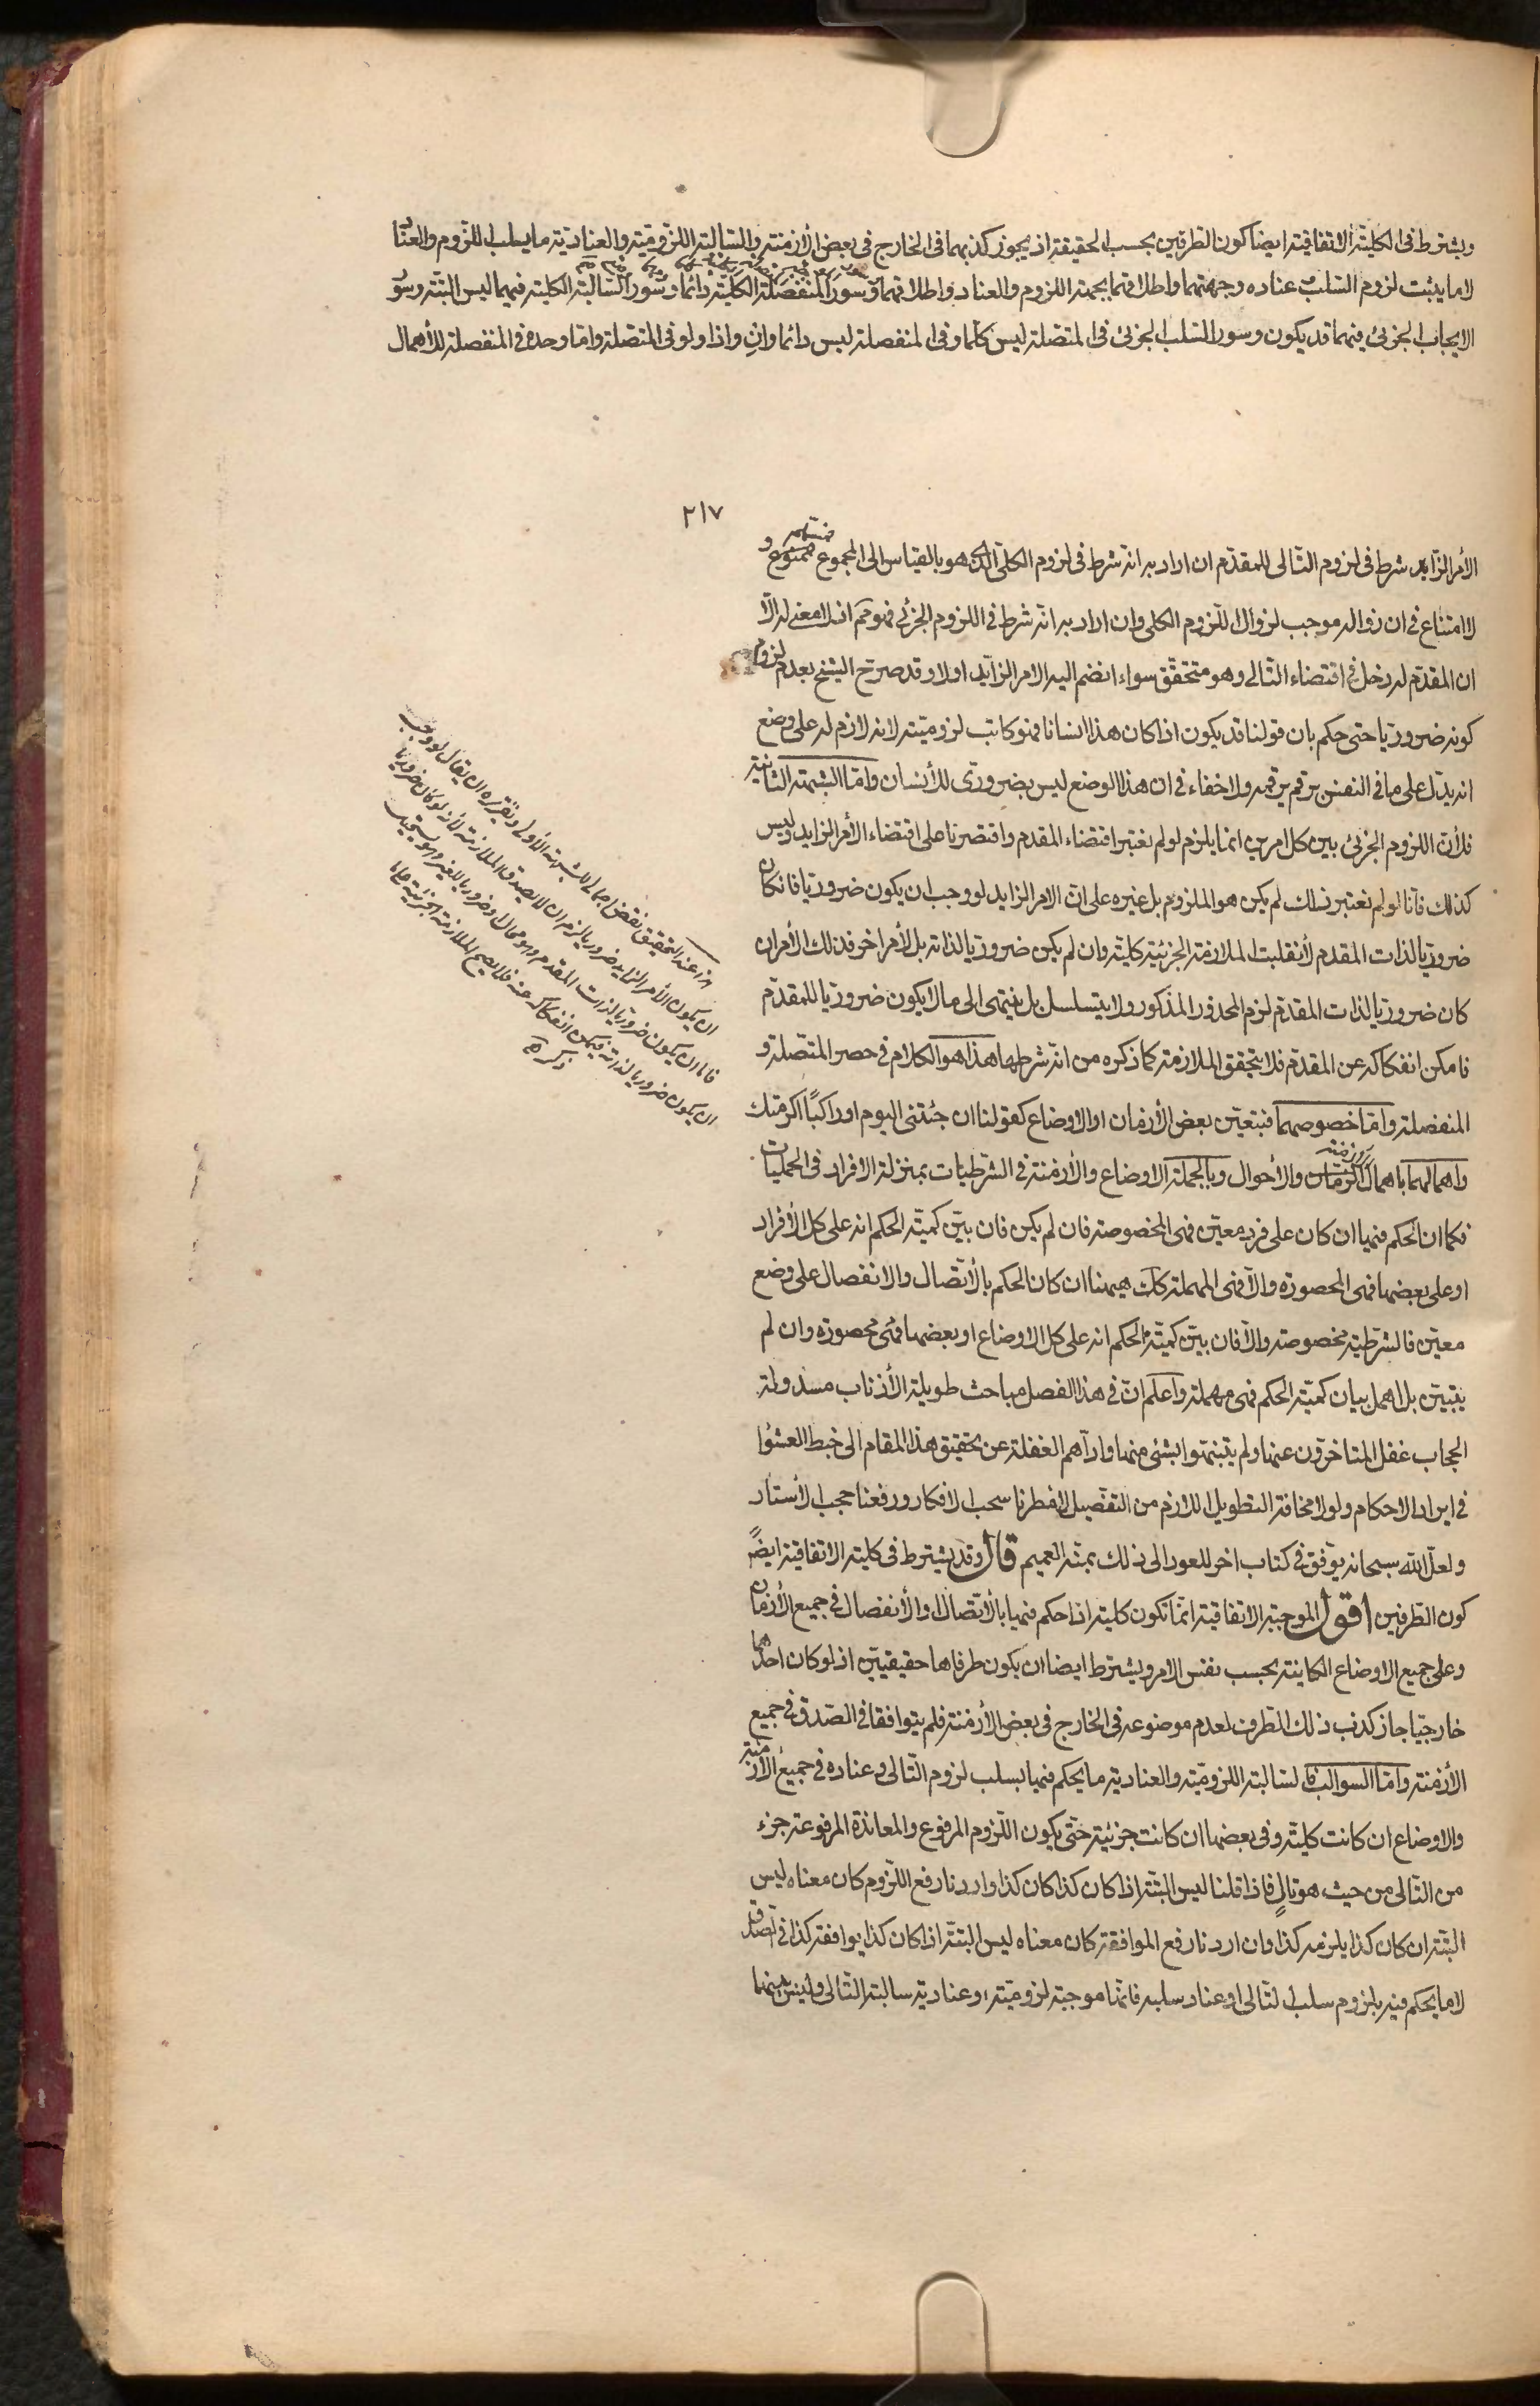 ويشترط فى الكلية الاتفاقية ايضا كون الطرفين بحسب الحقيقة اذ يجوز كذبهما فى الخارج فى بعض الأزمنة والسالبة اللزومية والعنادية ما يسلب اللزوم والعناد
لا ما يثبت لزوم السلب وعناده وجهتهما واطلاقهما بجهة اللزوم والعناد واطلاقهما وسور المنفصلة الكلية دائما وسور السالبة الكلية فيهما ليس البتة وسور
الايجاب الجزئى فيهما قد يكون وسور السلب الجزئى فى المتصلة ليس كلما وفى المنفصلة ليس دائما وان واذا ولو فى المتصلة واما وحده فى المنفصلة للأهمال
٢١٧
الأمر الزايد شرط فى لزوم التالى للمقدم ان اراد به انه شرط فى لزوم الكلى الذى هو بالقياس الى المجموع فمسلم و
لا امتناع فى ان زواله موجب لزوال اللزوم الكلى وان اراد به انه شرط فى اللزوم الجزئى فهو مم اذ لا معنى له الا
ان المقدم له دخل فى اقتضاء التالى وهو متحقق سواء انضم اليه الامر الزايد اولا وقد صرح الشيخ بعدم لزوم
كونه ضروريا حتى حكم بان قولنا قد يكون اذا كان هذا انسانا فهو كاتب لزومية لانه لازم له على وضع
انه يدل على ما فى النفس برقم يرقمه ولا خفاء فى ان هذا الوضع ليس بضرورى للأنسان واما الشبهة الثانية
فلأن اللزوم الجزئى بين كل امرين انما يلزم لو لم نعتبر اقتضاء المقدم واقتصرنا على اقتضاء الأمر الزايد وليس
كذلك فانا لو لم نعتبر ذلك لم يكن هو الملزوم بل غيره على ان الامر الزايد لو وجب ان يكون ضروريا فان كان
ضروريا لذات المقدم لأنقلبت الملازمة الجزئية كلية وان لم يكن ضروريا لذاته بل لأمر اخر فذلك الأمر ان
كان ضروريا لذات المقدم لزم المحذور المذكور ولا يتسلسل بل ينتهى الى ما لا يكون ضروريا للمقدم
فامكن انفكاكه عن المقدم فلا يتحقق الملازمة كما ذكره من انه شرطها هذا هو الكلام فى حصر المتصلة و
المنفصلة واما خصوصهما فبتعين بعض الأزمان او الاوضاع كقولنا ان جئتنى اليوم او راكبًا اكرمتك
واهمالهما باهمال الأزمنة والأحوال وبالجملة الاوضاع والأزمنة فى الشرطيات بمنزلة الافراد فى الحمليات
فكما ان الحكم فيها ان كان على فرد معين فهى المخصوصة فان لم يكن فان بين كمية الحكم انه على كل الأفراد
او على بعضها فهى المحصورة والا فهى المهملة كك هيهنا ان كان الحكم بالأتصال والانفصال على وضع
معين فالشرطية مخصوصة والا فان بين كمية الحكم انه على كل الاوضاع او بعضها فهى محصورة وان لم
يتبين بل اهمل بيان كمية الحكم فهى مهملة واعلم ان فى هذا الفصل مباحث طويلة الأذناب مسدولة
الحجاب غفل المتاخرون عنها ولم يتبنهوا بشئ منها واداهم الغفلة عن تحقيق هذا المقام الى خبط العشوا
فى ايراد الاحكام ولولا مخافة التطويل اللازم من التفصيل لامطرنا سحب الافكار ورفعنا حجب الأستار
ولعل الله سبحانه يوفق فى كتاب اخر للعود الى ذلك بمنه العميم قال وقد يشترط فى كلية الاتفاقية ايضًا
كون الطرفين اقول الموجبة الاتفاقية انما تكون كلية اذا حكم فيها بالأتصال والأنفصال فى جميع الأزمان
وعلى جميع الاوضاع الكاينة بحسب نفس الامر ويشترط ايضا ان يكون طرفاها حقيقيين اذ لو كان احدهما
خارجيا جاز كذب ذلك الطرف لعدم موضوعه فى الخارج فى بعض الأزمنة فلم يتوافقا فى الصدق فى جميع
الأزمنة واما السوالب فالسالبة اللزومية والعنادية ما يحكم فيها بسلب لزوم التالى وعناده فى جميع الأزمنة
والاوضاع ان كانت كلية وفى بعضها ان كانت جزئية حتى يكون اللزوم المرفوع والمعاندة المرفوعة جزء
من التالى من حيث هو تالٍ فاذا قلنا ليس البتة اذا كان كذا كان كذا واردنا رفع اللزوم كان معناه ليس
البتة ان كان كذا يلزمه كذا وان اردنا رفع الموافقة كان معناه ليس البتة اذا كان كذا يوافقه كذا فى الصدق
لا ما يحكم فيه بلزوم سلب التالى او عناد سلبه فانها موجبة لزومية او عنادية سالبة التالى وليس بينهما
هذا عند التحقيق نقض اجمالى للشبهة الأولى وتقريره ان يقال لو وجب
ان يكون الأمر الزايد ضروريا لزم ان لا يصدق الملازمة لأنه لو كان ضروريا
فاما ان يكون ضروريا لذات المقدم وهو محال وضروريا لغيره
ان يكون ضروريا لذاته فيمكن انفكاكه عنه فلا يصح الملازمة الجزئية على ما
ذكره